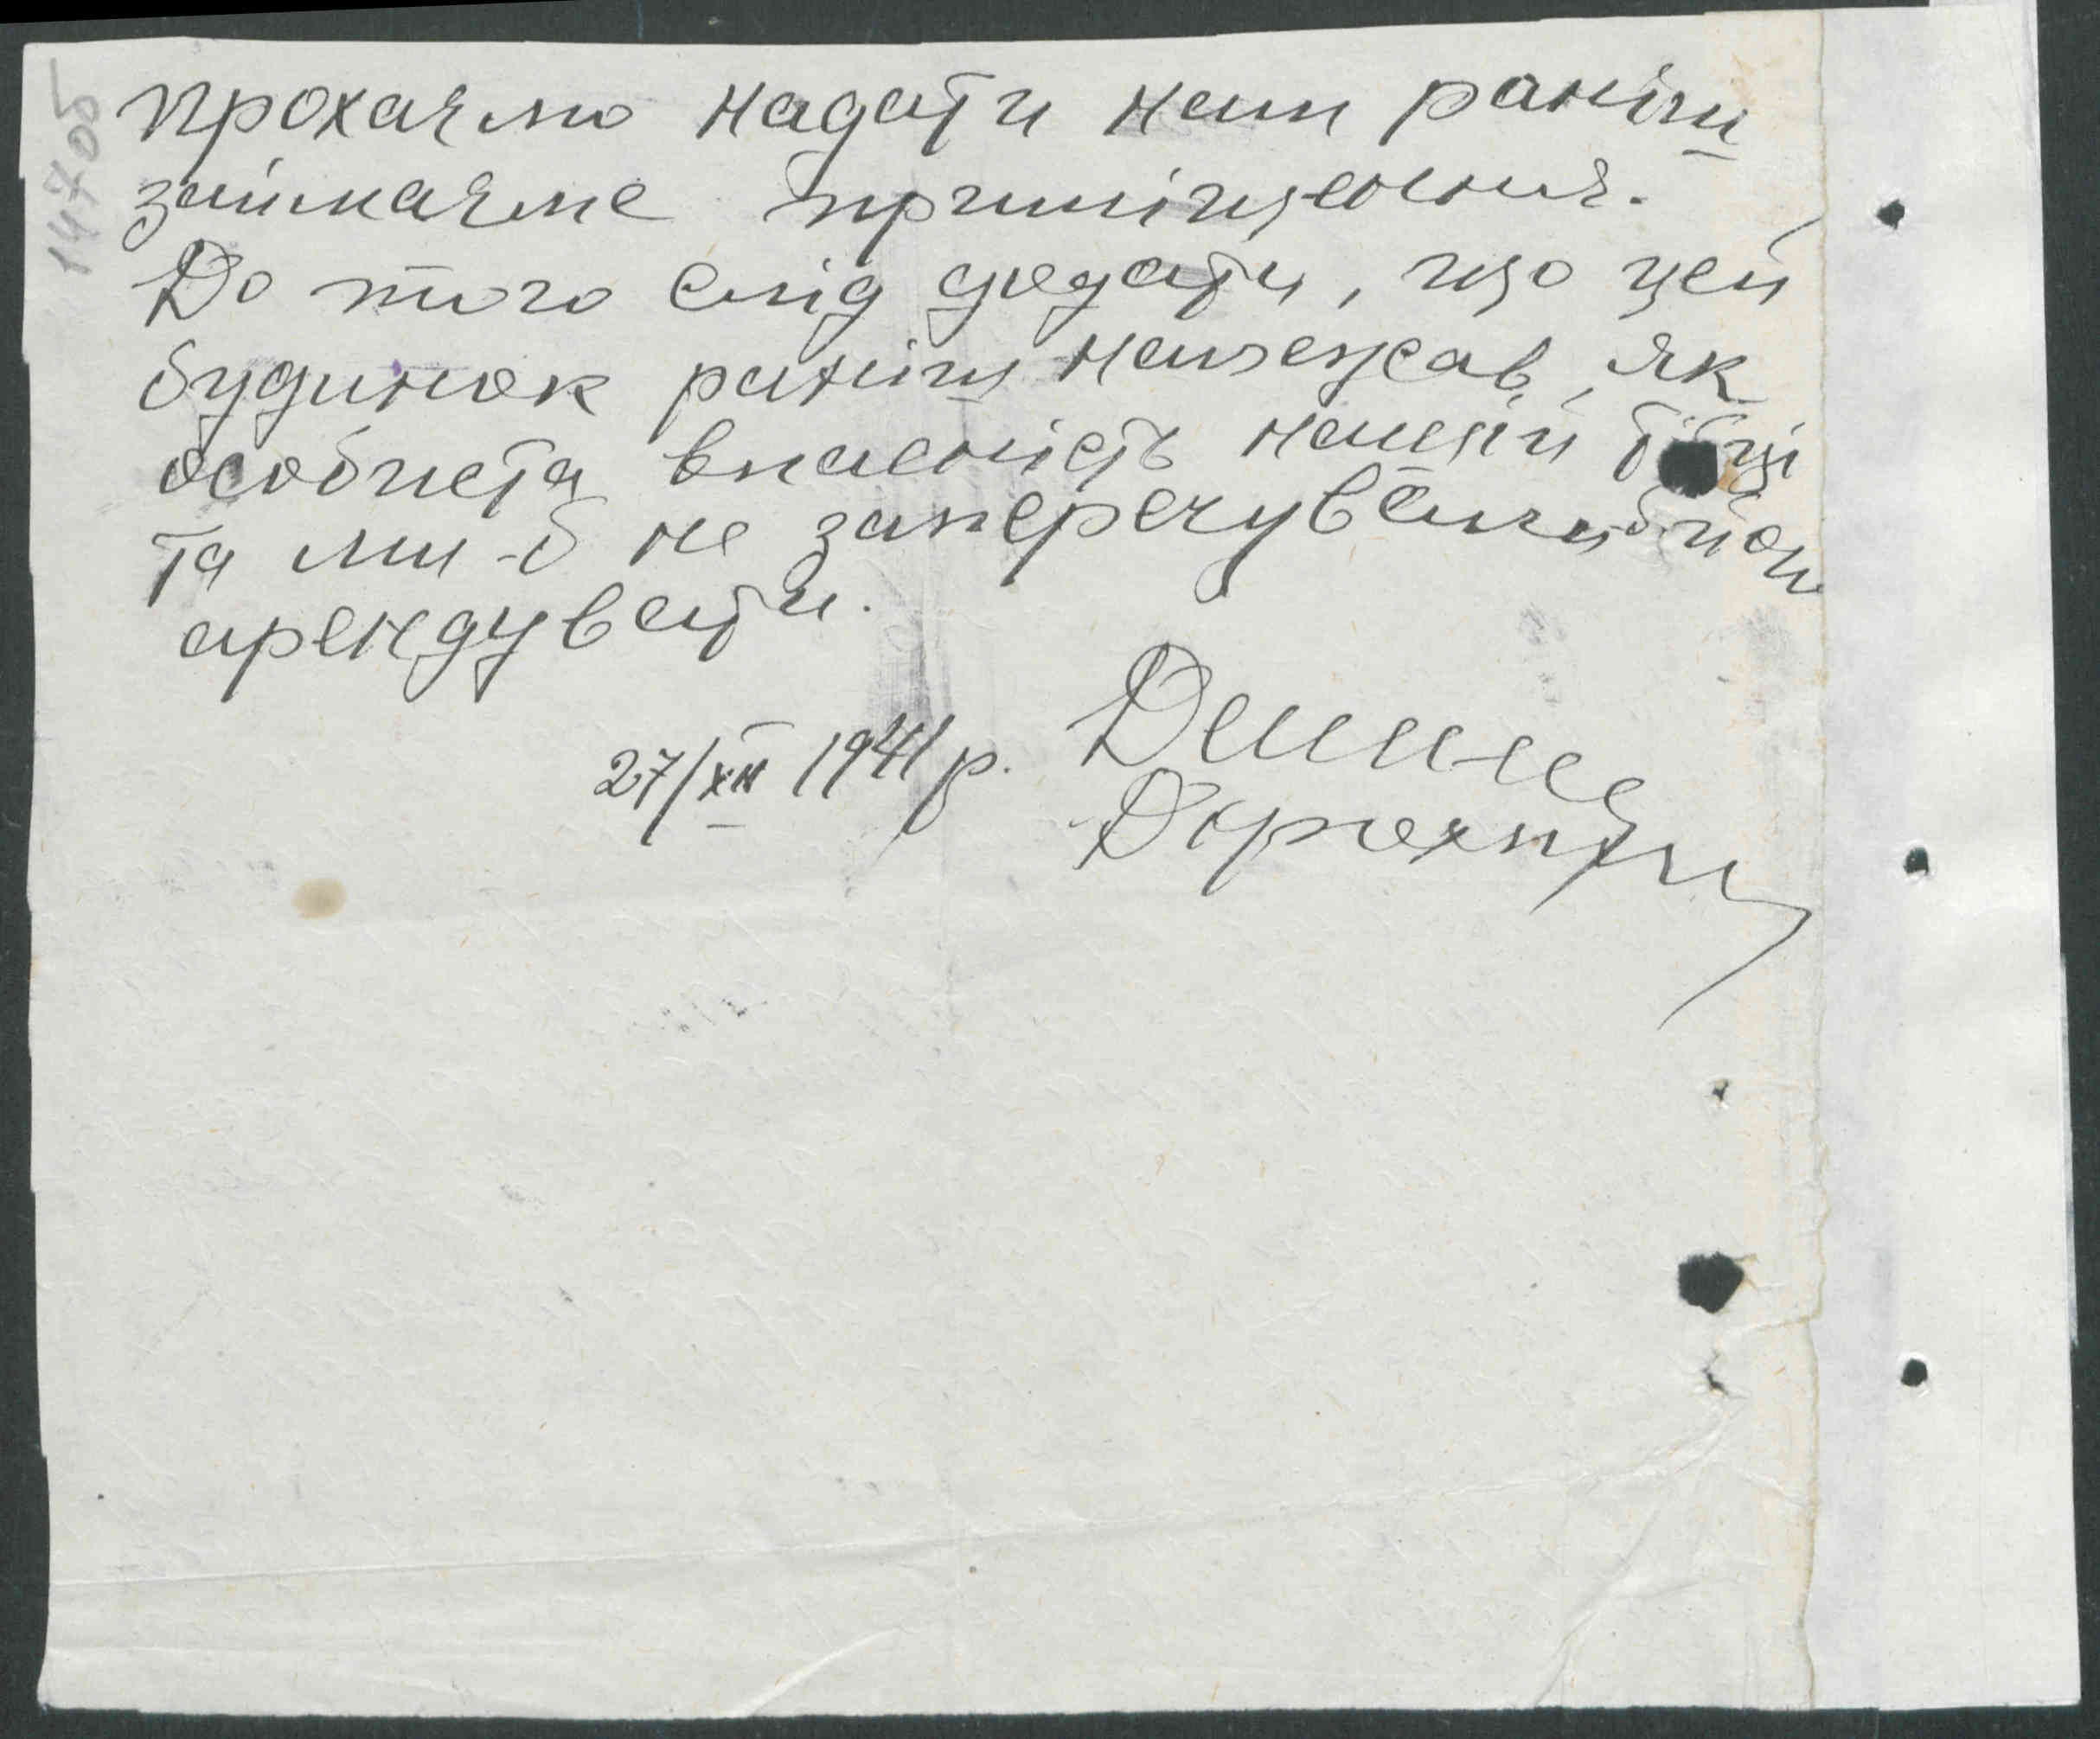 14705
прохаємо надати нам раніш
займаєме приміщення.
До того слід додати, що цей
будинок раніш належав, як
особиста власність нашій
та ми-б не заперечували б його
арендувати.
27/XII 1941 р.